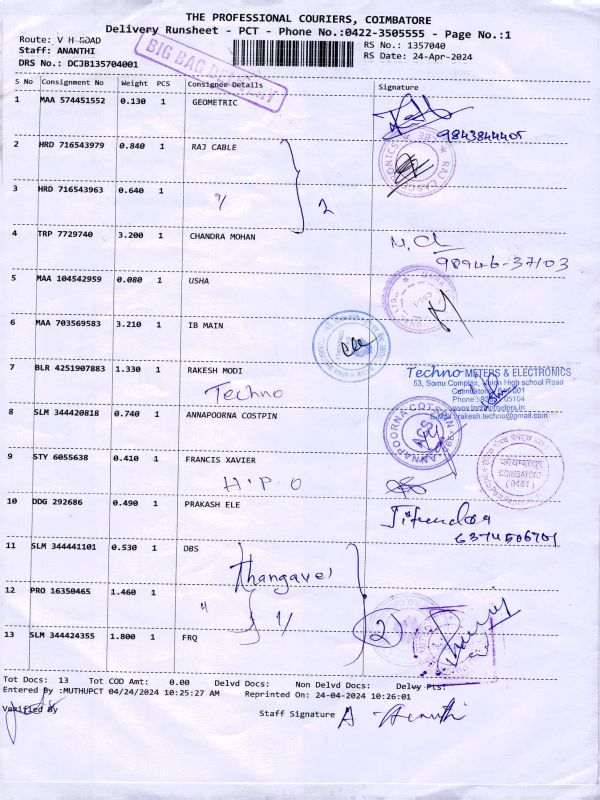 THE PROFESSIONAL COURIERS, COIMBATORE
Delivery Runsheet - PCT - Phone No.:0422-3505555 - Page No.:1
Route: V H ROAD
RS No.: 1357040
Staff: ANANTHI
RS Date: 24-Apr-2024
DRS No.: DCJB135704001
BIG BAG DELIVERY
S No Consignment No Weight PCS Consignee Details Signature
1 MAA 574451552 0.130 1 GEOMETRIC
9843844405
2 HRD 716543979 0.840 1 RAJ CABLE
3 HRD 716543963 0.640 1
2
4 TRP 7729740 3.200 1 CHANDRA MOHAN
98946-37103
5 MAA 104542959 0.080 1 USHA
6 MAA 703569583 3.210 1 IB MAIN
7 BLR 4251907883 1.330 1 RAKESH MODI
Techno
Techno METERS & ELECTRONICS
53, Somu Complex, Union High school Road
www.technometers.in
8 SLM 344420818 0.740 1 ANNAPOORNA COTSPIN
ANNAPOORNA COTSPIN
ACS
9 STY 6055638 0.410 1 FRANCIS XAVIER
H.P.O
COIMBATORE
(0461)
10 DDG 292686 0.490 1 PRAKASH ELE
Jitendra
6374506701
11 SLM 344441101 0.530 1 DBS
Thangavel
12 PRO 16350465 1.460 1
2
13 SLM 344424355 1.800 1 FRQ
Tot Docs: 13 Tot COD Amt: 0.00 Delvd Docs: Non Delvd Docs: Delvy Pts:
Entered By :MUTHUPCT 04/24/2024 10:25:27 AM Reprinted On: 24-04-2024 10:26:01
Verified By
Staff Signature A Ananthi